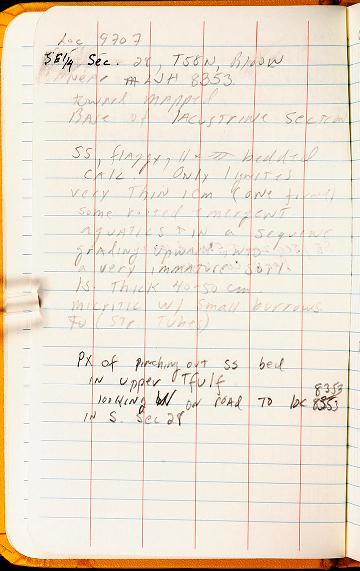 Loc 9707
SE1/4 Sec. 28, T58N, R100W
Near LVH 8353
toward mapped
Base of lacustrine section
SS, flaggy, bedded
calc. Only lignites
very thin 1cm (one found)
some rooted emergent
aquatics in a sequence
grading upward into
a very immature soil.
ls. thick 40-50 cm
micritic w/ small burrows
(STR Tubes)
PX of pinching out SS bed
in upper Tfulf
8353
looking W on road to loc 8353
in S. Sec 28